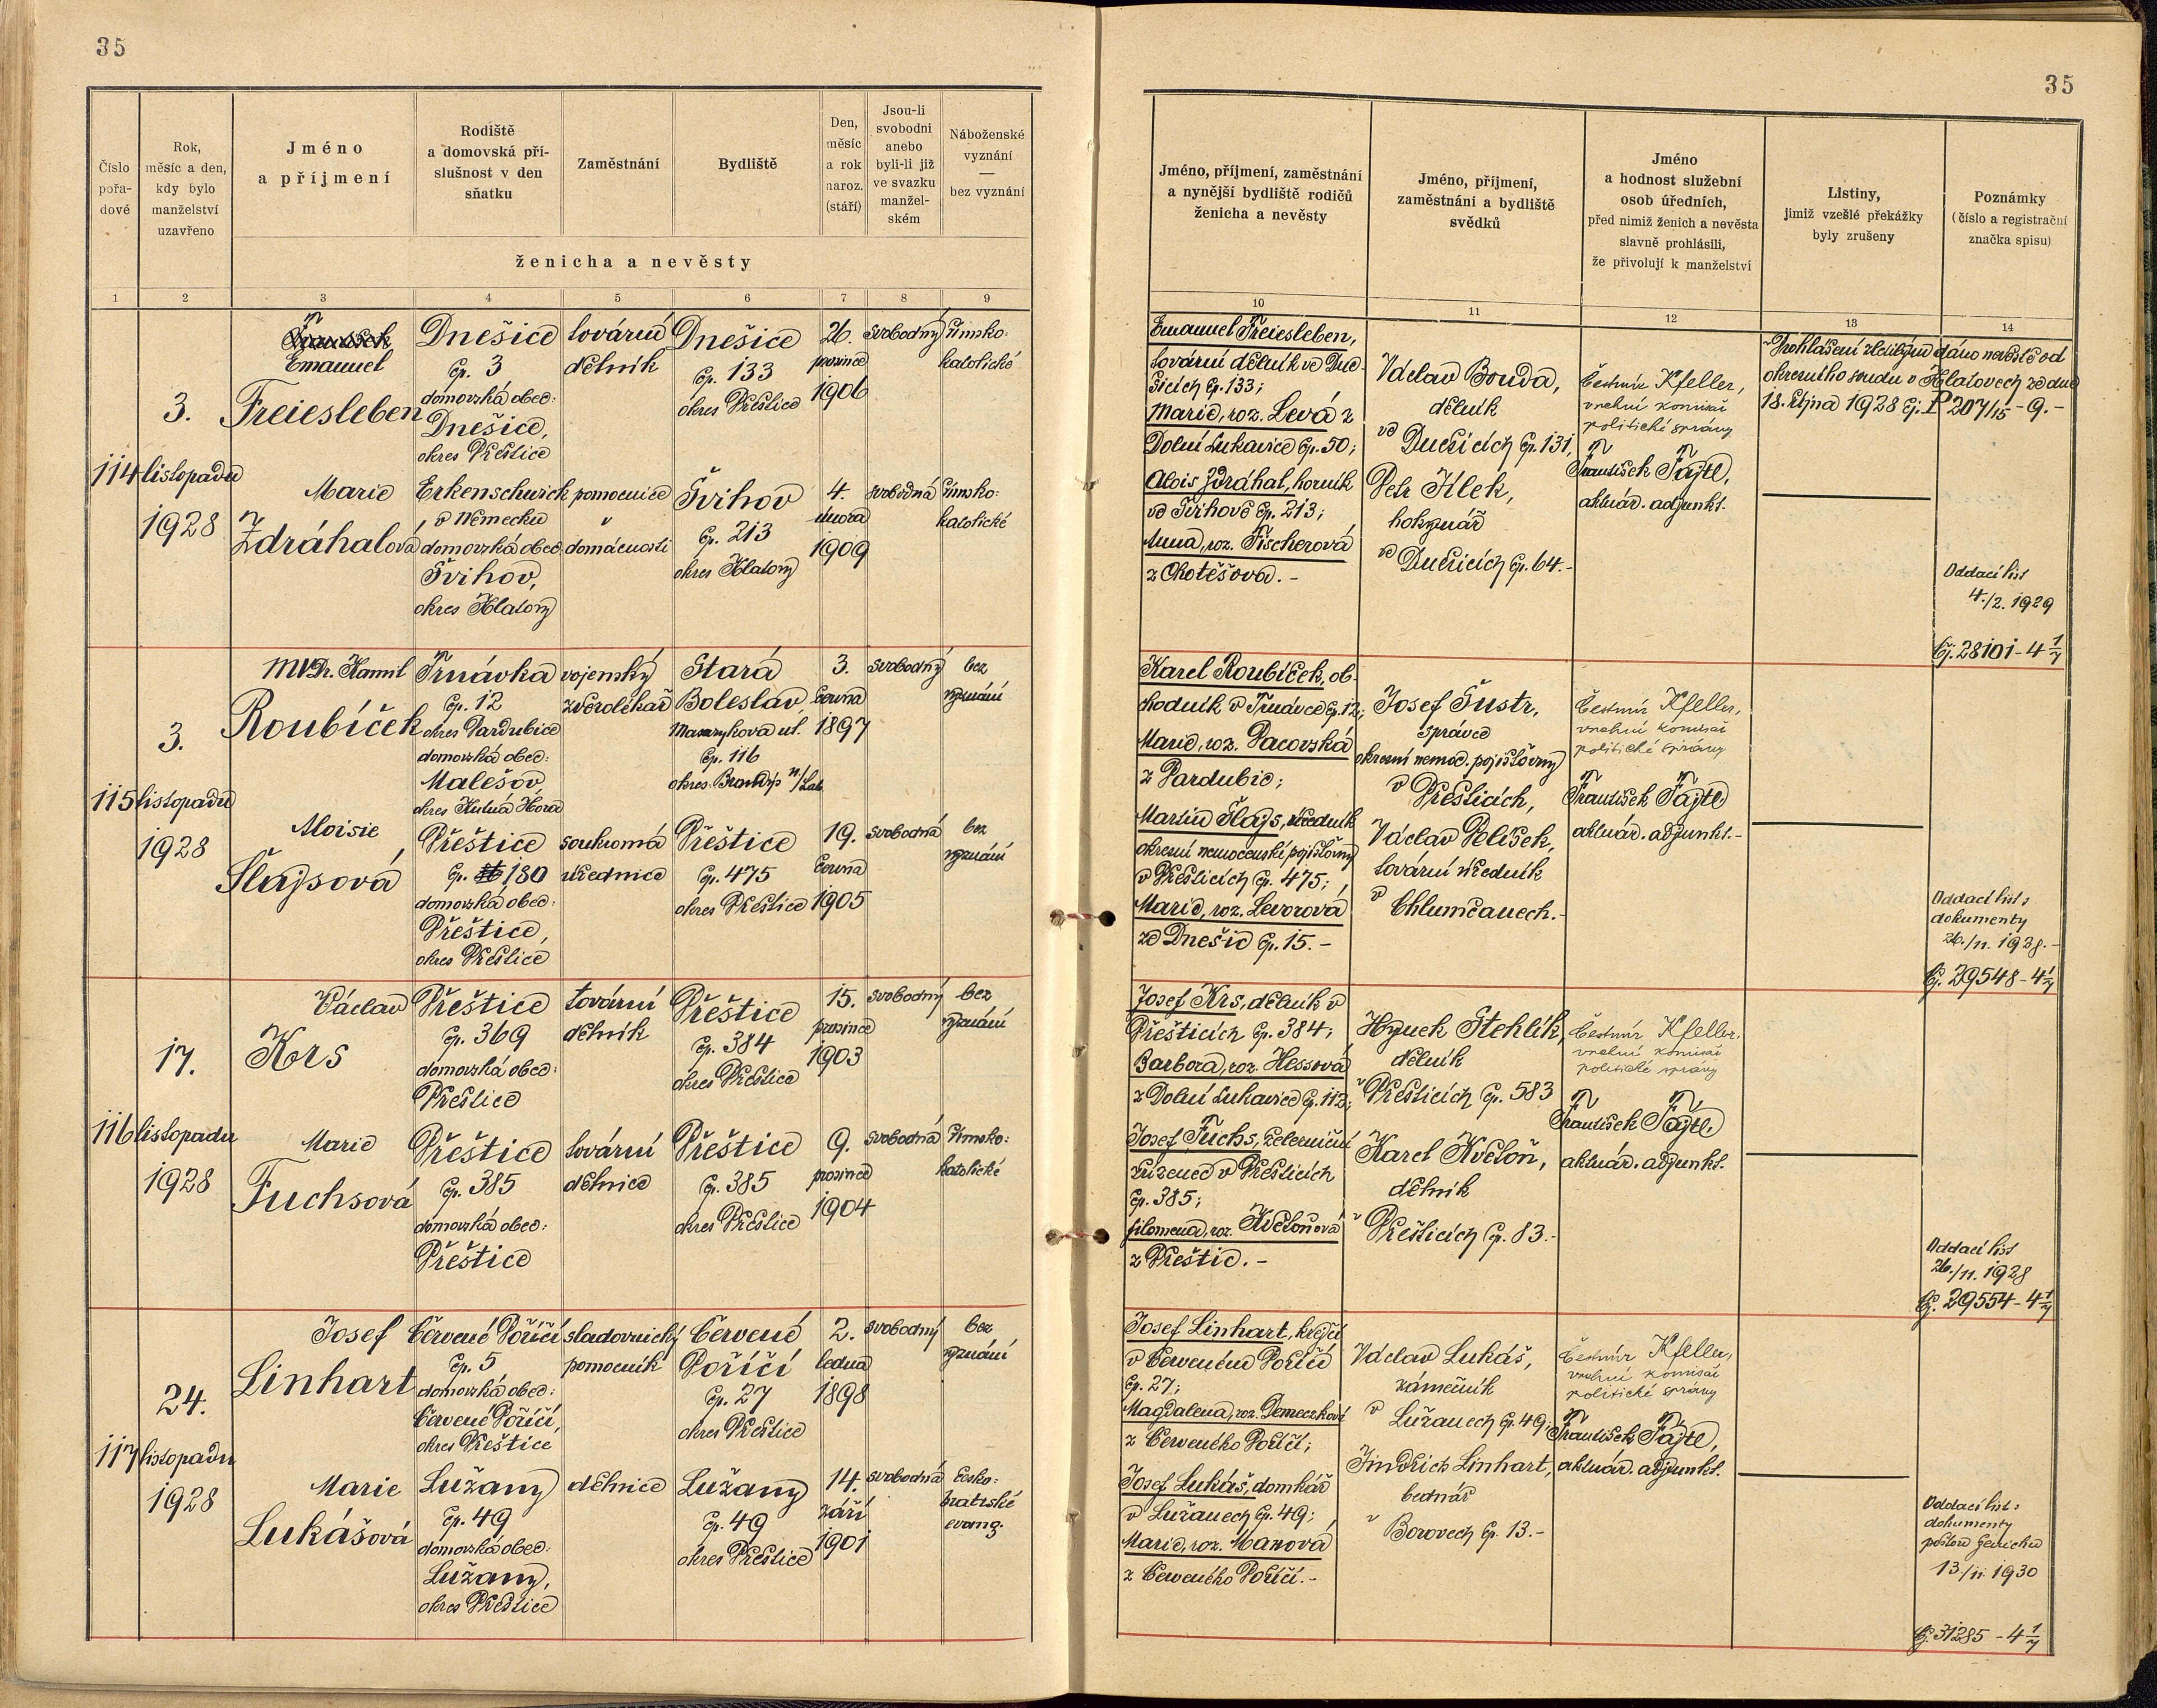 35
Číslo
pořa-
dové
Rok,
měsíc a den,
kdy bylo
manželství
uzavřeno
Jméno
a příjmení
Rodiště
a domovská pří-
slušnost v den
sňatku
Zaměstnání
Bydliště
Den,
měsíc
a rok
naroz.
(stáří)
Jsou-li
svobodni
anebo
byli-li již
ve svazku
manžel-
ském
Náboženské
vyznání
—
bez vyznání
ženicha a nevěsty
1 2 3 4 5 6 7 8 9
114
3.
listopadu
1928
Emanuel
Freiesleben
Dnešice
čp. 3
domovská obec:
Dnešice,
okres Přeštice
tovární
dělník
Dnešice
čp. 133
okres Přeštice
26.
prosince
1906
svobodný
římsko-
katolické
Marie
Zdráhalová
Erkenschwick
v Německu
domovská obec
Švihov,
okres Klatovy
pomocnice
v
domácnosti
Švihov
čp. 213
okres Klatovy
4.
února
1909
svobodná
římsko-
katolické
115
3.
listopadu
1928
MVDr. Kamil
Roubíček
Trnávka
čp. 12
okres Pardubice
domovská obec:
Malešov
okres Kutná Hora
vojenský
zvěrolékař
Stará
Boleslav
Masarykova ul.
čp. 116
okres Brandýs n/Lab
3.
června
1897
svobodný
bez
vyznání
Aloisie
Šlajsová
Přeštice
čp. 180
domovská obec:
Přeštice,
okres Přeštice
soukromá
úřednice
Přeštice
čp. 475
okres Přeštice
19.
června
1905
svobodná
bez
vyznání
116
17.
listopadu
1928
Václav
Kors
Přeštice
čp. 369
domovská obec:
Přeštice
tovární
dělník
Přeštice
čp. 384
okres Přeštice
15.
prosince
1903
svobodný
bez
vyznání
Marie
Fuchsová
Přeštice
čp. 385
domovská obec:
Přeštice
tovární
dělnice
Přeštice
čp. 385
okres Přeštice
9.
prosince
1904
svobodná
římsko-
katolické
117
24.
listopadu
1928
Josef
Linhart
Červené Poříčí
čp. 5
domovská obec:
Červené Poříčí,
okres Přeštice
sladovnický
pomocník
Červené
Poříčí
čp. 27
okres Přeštice
2.
ledna
1898
svobodný
bez
vyznání
Marie
Lukášová
Lužany
čp. 49
domovská obec:
Lužany,
okres Přeštice
dělnice
Lužany
čp. 49
okres Přeštice
14.
září
1901
svobodná
česko-
bratrské
evang.
35
Jméno, příjmení, zaměstnání
a nynější bydliště rodičů
ženicha a nevěsty
Jméno, příjmení,
zaměstnání a bydliště
svědků
Jméno
a hodnost služební
osob úředních,
před nimiž ženich a nevěsta
slavně prohlásili,
že přivolují k manželství
Listiny,
jimiž vzešlé překážky
byly zrušeny
Poznámky
(číslo a registrační
značka spisu)
10 11 12 13 14
Emanuel Freiesleben,
tovární dělník ve Dne-
šicích čp. 133;
Marie, roz. Levá z
Dolní Lukavice čp. 50;
Alois Zdráhal, horník
ve Švihově čp. 213;
Anna, roz. Fischerová
z Chotěšova.-
Václav Bouda,
dělník
ve Dnešicích čp. 131,
Petr Klek,
hokynář
ve Dnešicích čp. 64.-
Čestmír Kfeller,
vrchní komisař
politické správy
František Fajtl,
aktuár. adjunkt.
Prohlášení zletilým dáno nevěstě od
okresního soudu v Klatovech ze dne
18. října 1928 čj. P 207/15-9.-
Oddací list
4./2. 1929
Čj. 28101-4 1/7
Karel Roubíček, ob-
chodník v Trnávce čp. 12;
Marie, roz. Pacovská
z Pardubic;
Martin Šlajs, úředník
okresní nemocenské pojišťovny
v Přešticích čp. 475;
Marie, roz. Levorová
ze Dnešic čp. 15.-
Josef Šustr,
správce
okresní nemoc. pojišťovny
v Přešticích,
Václav Pelíšek,
tovární úředník
v Chlumčanech.-
Čestmír Kfeller,
vrchní komisař
politické správy
František Fajtl
aktuár. adjunkt.-
Oddací list:
dokumenty
26./11. 1928.-
Čj. 29548-4 1/7
Josef Krs, dělník v
Přešticích čp. 384;
Barbora, roz. Hessová
z Dolní Lukavice čp. 112;
Josef Fuchs, železniční
zřízenec v Přešticích
čp. 385;
Filomena, roz. Květoňová
z Přeštic.-
Hynek Stehlík,
dělník
v Přešticích čp. 583
Karel Květoň,
dělník
v Přešticích čp. 83.-
Čestmír Kfeller,
vrchní komisař
politické správy
František Fajtl
aktuár. adjunkt.
Oddací list
26./11. 1928
Čj. 29554-4 1/7
Josef Linhart, krejčí
v Červeném Poříčí
čp. 27;
Magdalena, roz. Demeczková
z Červeného Poříčí;
Josef Lukáš, domkář
v Lužanech čp. 49;
Marie, roz. Manová
z Červeného Poříčí.-
Václav Lukáš,
zámečník
v Lužanech čp. 49;
Jindřich Linhart,
bednář
v Borovech čp. 13.-
Čestmír Kfeller,
vrchní komisař
politické správy
František Fajtl,
aktuár. adjunkt.
Oddací list:
dokumenty
poštou ženichu
13./11. 1930
Čj. 31285-4 1/7